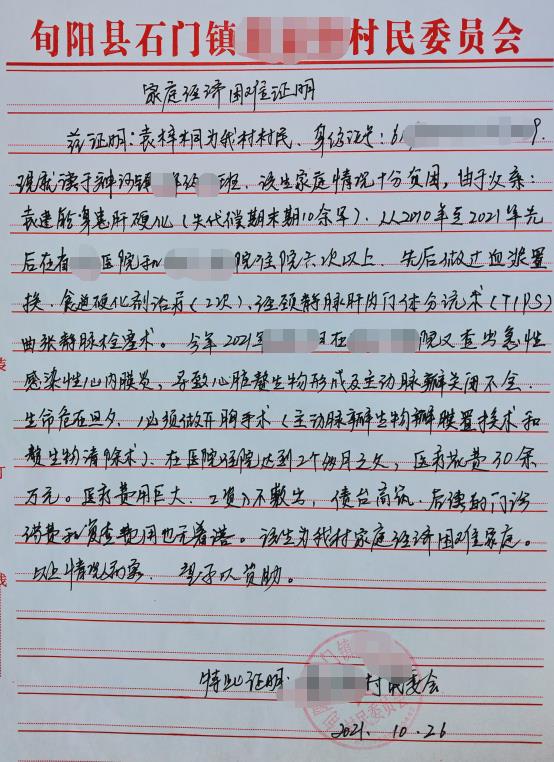 旬阳县石门镇 村民委员会
家庭经济困难证明
兹证明:袁梓桐为我村村民、身份证号:6 9.
现就读于神河镇 班。该生家庭情况十分贫困,由于父亲:
袁建能身患肝硬化(失代偿期末期10余年)、从2010年至2021年先
后在省 医院和 院住院六次以上、先后做过血浆置
换、食道硬化剂治疗(2次)、经颈静脉肝内门体分流术(TIPS)
曲张静脉栓塞术。今年2021年 日在 院又查出急性
感染性心内膜炎,导致心脏赘生物形成及主动脉瓣关闭不全、
生命危在旦夕、必须做开胸手术(主动脉瓣生物瓣膜置换术和
赘生物清除术)、在医院住院达到2个多月之久,医疗花费30余
万元。医疗费用巨大、工资入不敷出,债台高筑、后续的门诊
药费和复查费用也无着落。该生为我村家庭经济困难家庭。
以上情况属实、望予以资助。
特此证明. 村民委会
2021. 10. 26
门镇
村民委员会
装
订
线